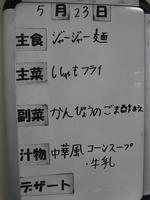 5月23日
主食 ジャージャー麺
主菜 ししゃもフライ
副菜 かんぴょうのごまあえ
汁物 中華風コーンスープ
・牛乳
デザート